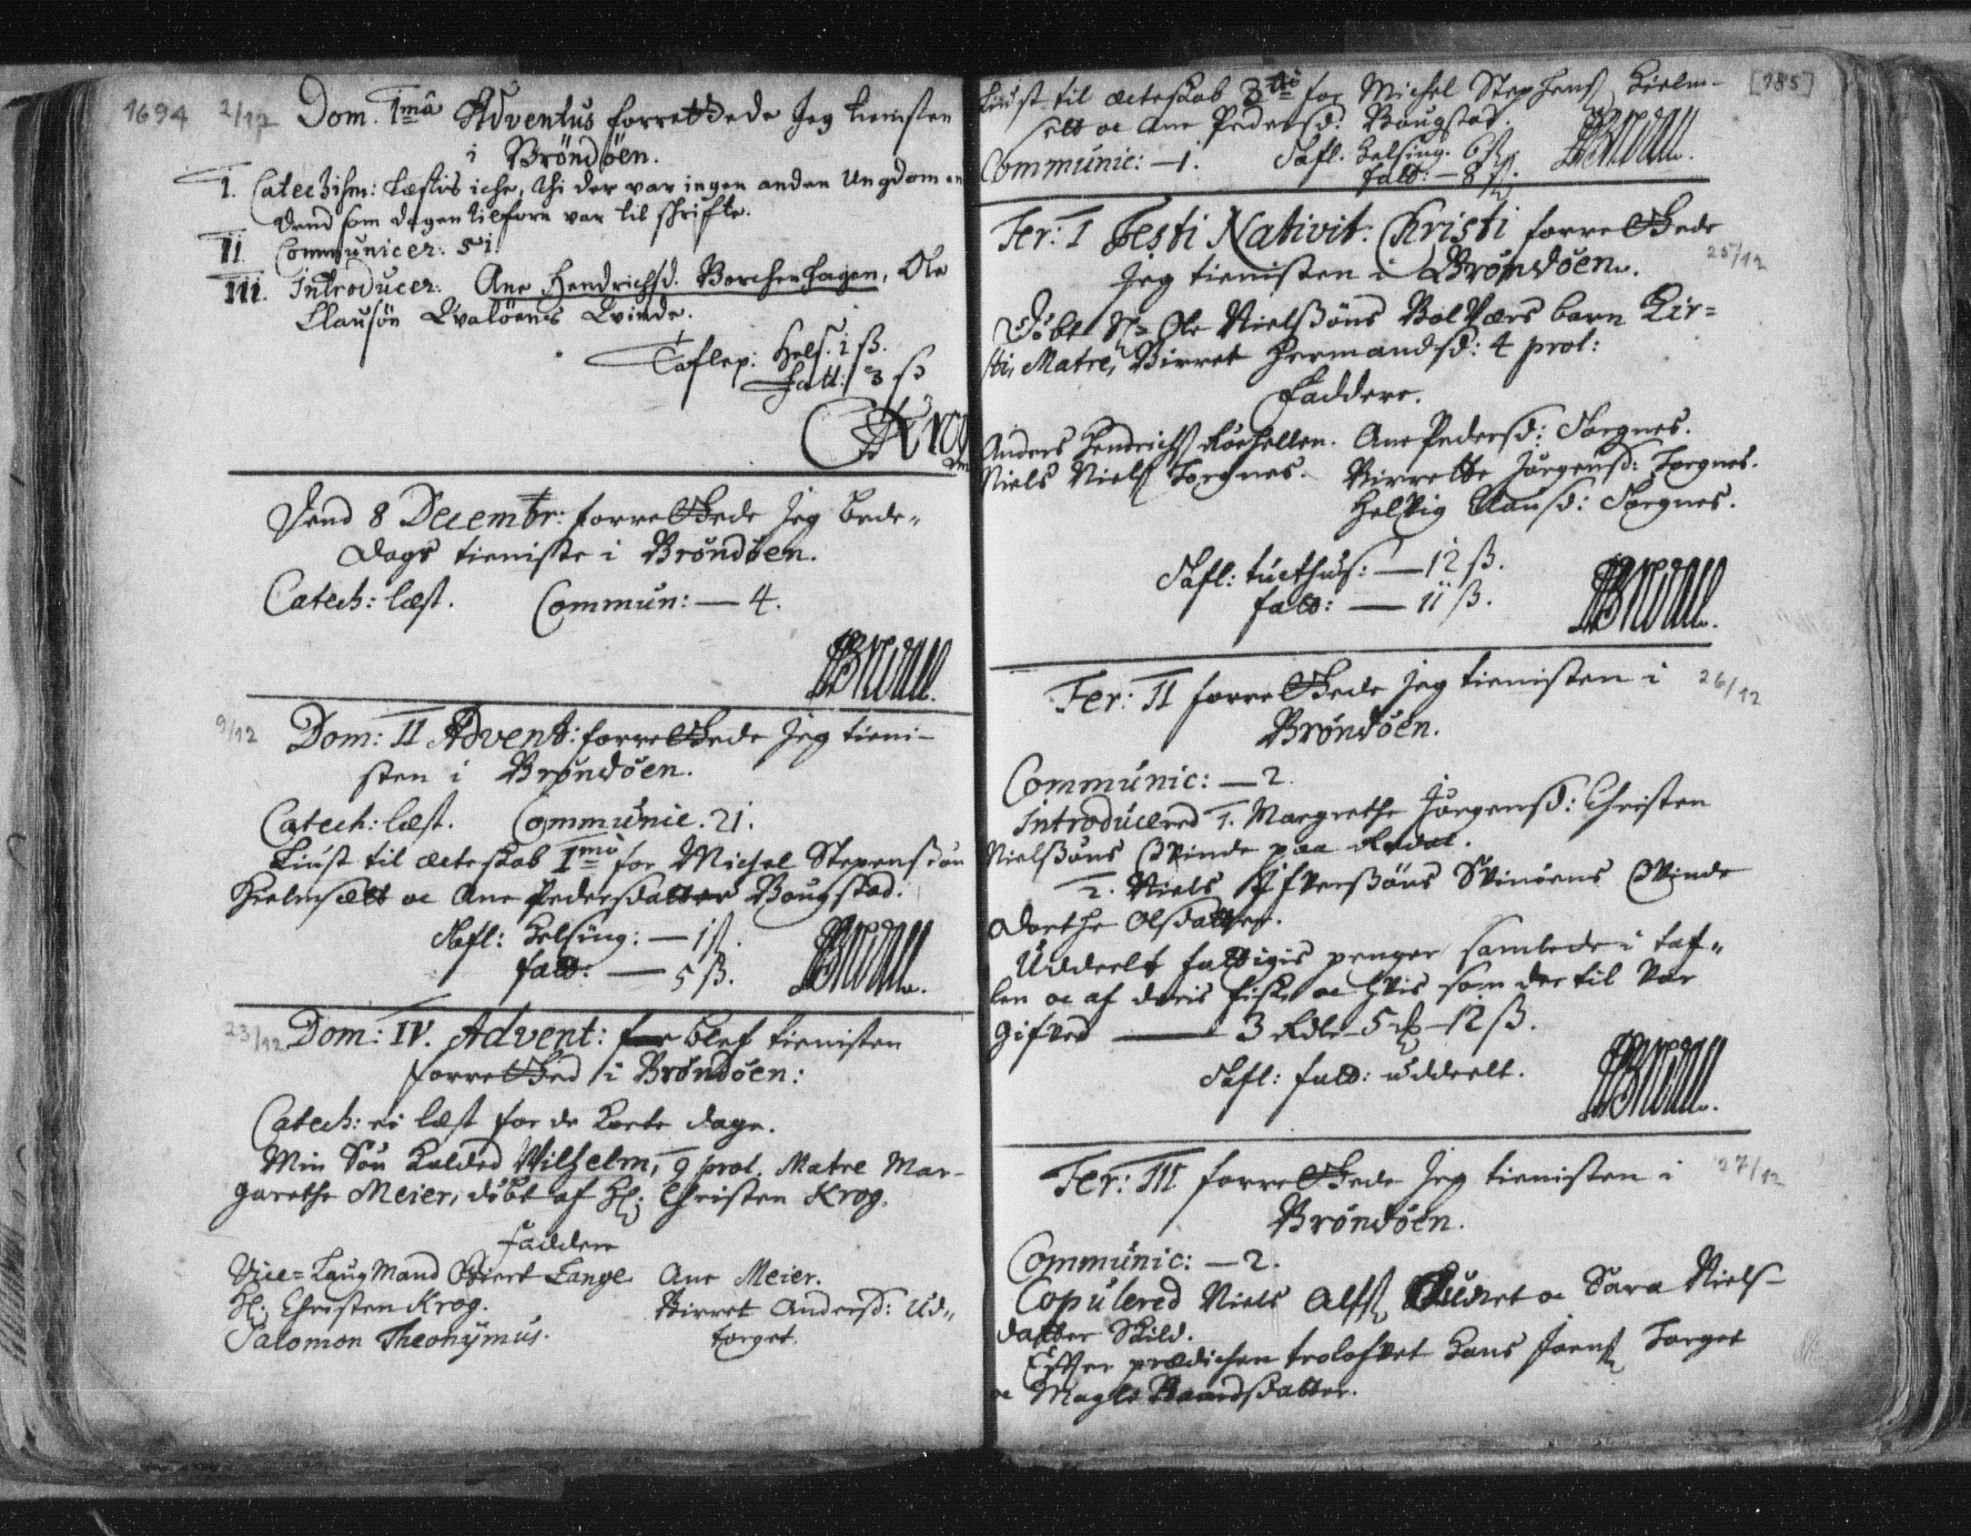 1694 2/12 Dom. 1mâ Adventus forrettede Jeg tienisten
i Bröndöen.
I. Catechism: læstis iche, thi der var ingen anden Ungdom en
dend som dagen tilforn var til schrifte.
II. Communicer: 51.
III. Introducer: Ane Hendrichsd. Borchenhagen, Ole
Clausön Qvalöens Qvinde.
Taflep: Hels. 2 ß.
Fatt: 3 ß
Krog
Dend 8 Decembr: forrettede Jeg bede-
dags tieniste i Bröndöen.
Catech: læst. Commun: — 4.
9/12 Dom: II Advent: forrettede Jeg tieni-
sten i Bröndöen.
Catech: læst. Communic. 21.
Liust til ecteskab 1mo for Michel Stepensdön
Hielmsett oc Ane Pedersdatter Bougstad.
Tafl: helsing: — 1ß.
fatt: — 5 ß.
23/12 Dom: IV. Advent: for blef tienisten
forretted i Bröndöen:
Catech: ei læst for de korte dage.
Min Sön kalded Wilhelm, 9 prol. Matre Mar-
garethe Meier, döbt af Hr: Christen Krog.
Faddere
Vice-LaugMand Sivert Lange Ane Meier.
Hr: Christen Krog. Birret Andersd: Ud-
Salomon Theonÿmus. torget.
[185]
Liust til ecteskab 3tio for Michel Stephens Hielm-
sett oc Ane Pedersd: Bougstad.
Communic: — 1. Tafl. helsing. 6 ß.
fatt: — 8 ß.
Fer: I Festi Nativit: Christi forrettede
Jeg tienisten i Bröndöen. 25/12
Döbt Ole Nielßöns Bolværs barn Kir-
sti, Matre, Birret Hermandsd: 4 prol:
Faddere.
Anders Hendrichs Ane Pedersd: Torgnes.
Niels Niels Torgnes. Birrette Jörgensd: Torgnes.
Helvig Clausd: Torgnes.
Tafl: tucthus: — 12 ß.
fatt: — 11 ß.
Fer: II forrettede Jeg tienisten i 26/12
Bröndöen.
Communic: — 2.
Introducered 1. Margrethe Jörgensd: Christen
Nielßöns Qvinde paa
2. Niels Ifverßöns Svinöens Qvinde
Dorthe Olsdatter.
Uddeelt fattigis penger samlede i taf-
len oc af deris fisk oc hvis som der til var
gifved — 3 Rdlr 5 — 12 ß.
Tafl: fatt: uddeelt.
Fer: III forrettede Jeg tienisten i 27/12
Bröndöen.
Communic: — 2.
Copulered Niels Alfs oc Sara Niels-
datter Skild.
Efter prædichen trolofvet Hans Joens Torget
oc Magle